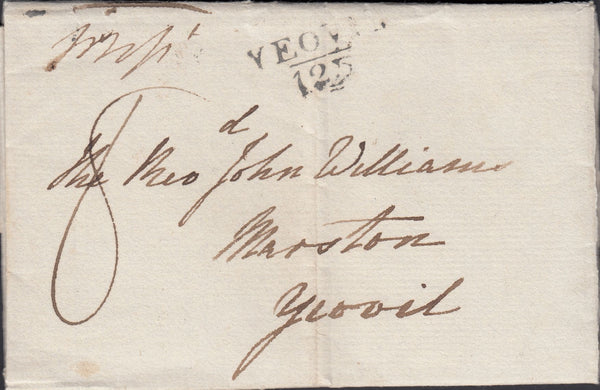 YEOV
125
8
The Revd John Williams
Marston
Yeovil